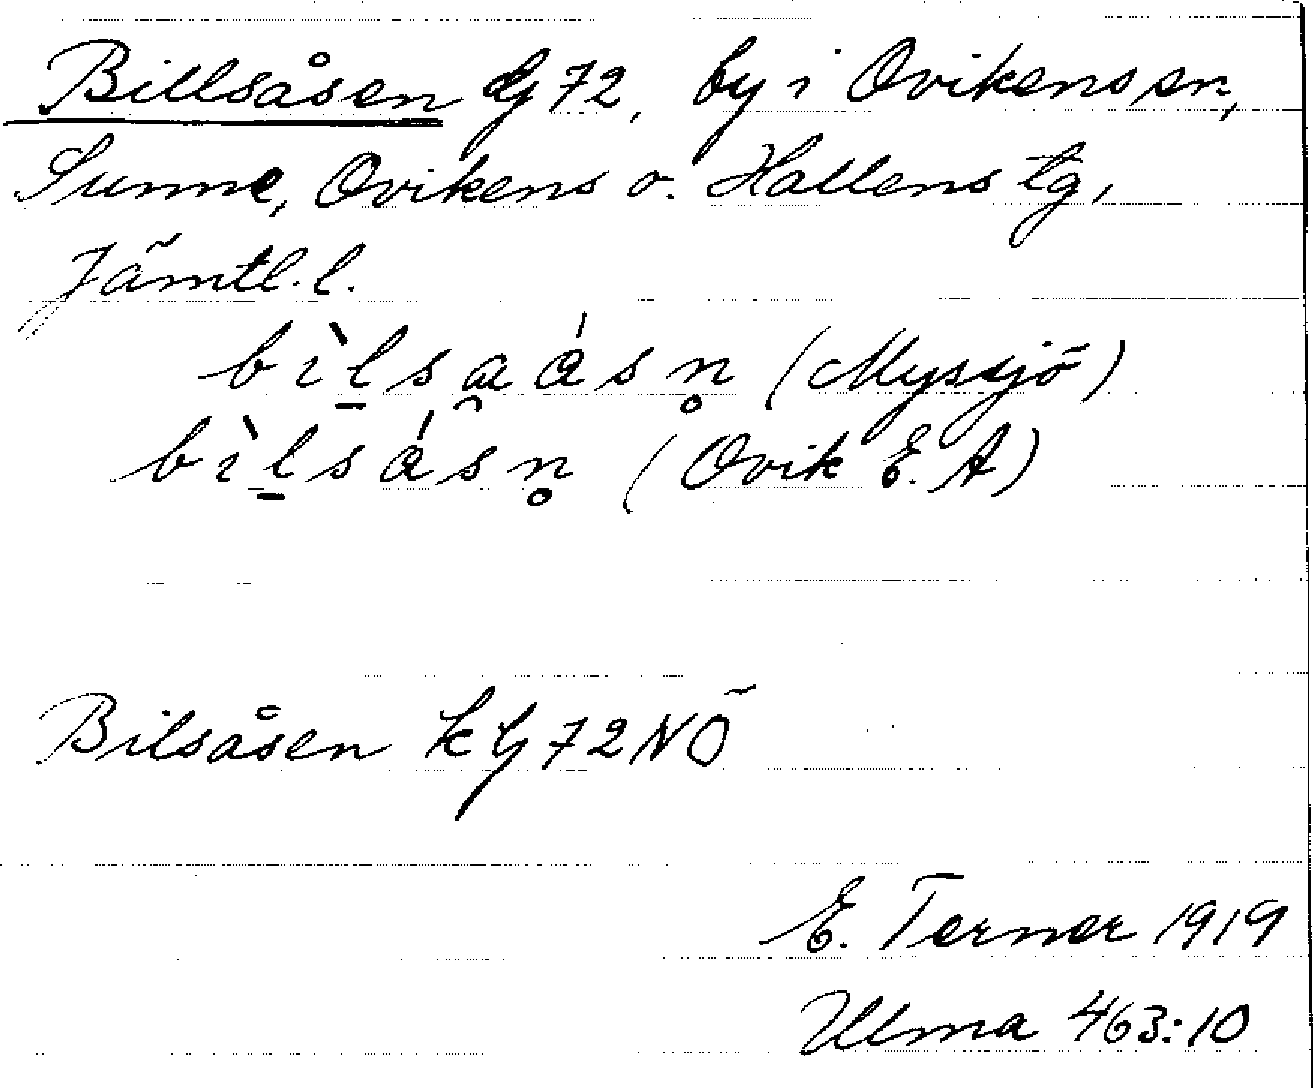 Billsåsen G72, by i Ovikens sn,
Sunne, Ovikens o. Hallens tg,
Jämtl. l.
bìḻsa̯ásn̥ (Myssjö)
bìḻsásn̥ (Ovik E. A)
Bilsåsen k G 72 NÖ
E. Terner 1919
Ulma 463:10